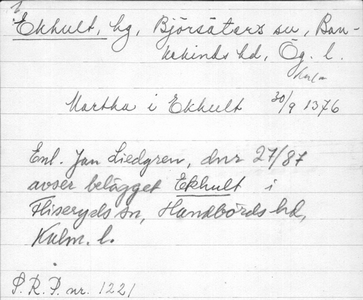 Ekhult, hg, Björsäters sn, Ban-
kekinds hd, Ög. l.
Martha i Ekhult 30/9 1376
Enl. Jan Liedgren, dnr 27/87
avser belägget Ekhult i
Fliseryds sn, Handbörds hd,
Kalm. l.
S.R.P. nr. 1221